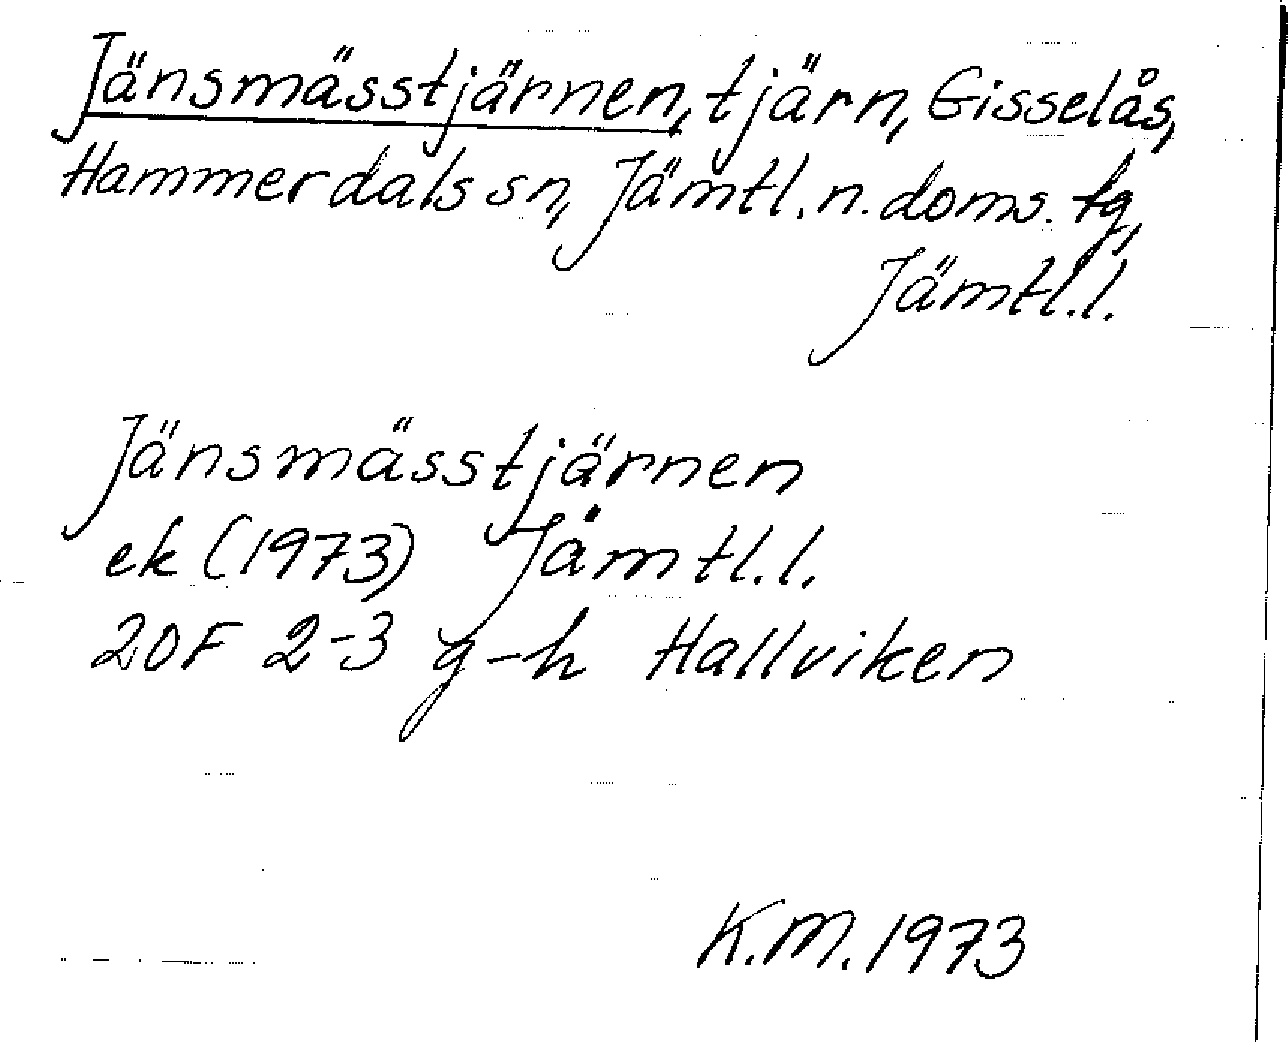 Jänsmässtjärnen, tjärn, Gisselås,
Hammerdals sn, Jämtl. n. doms. tg,
Jämtl. l.
Jänsmässtjärnen
ek (1973) Jämtl. l.
20F 2-3 g-h Hallviken
K.M. 1973